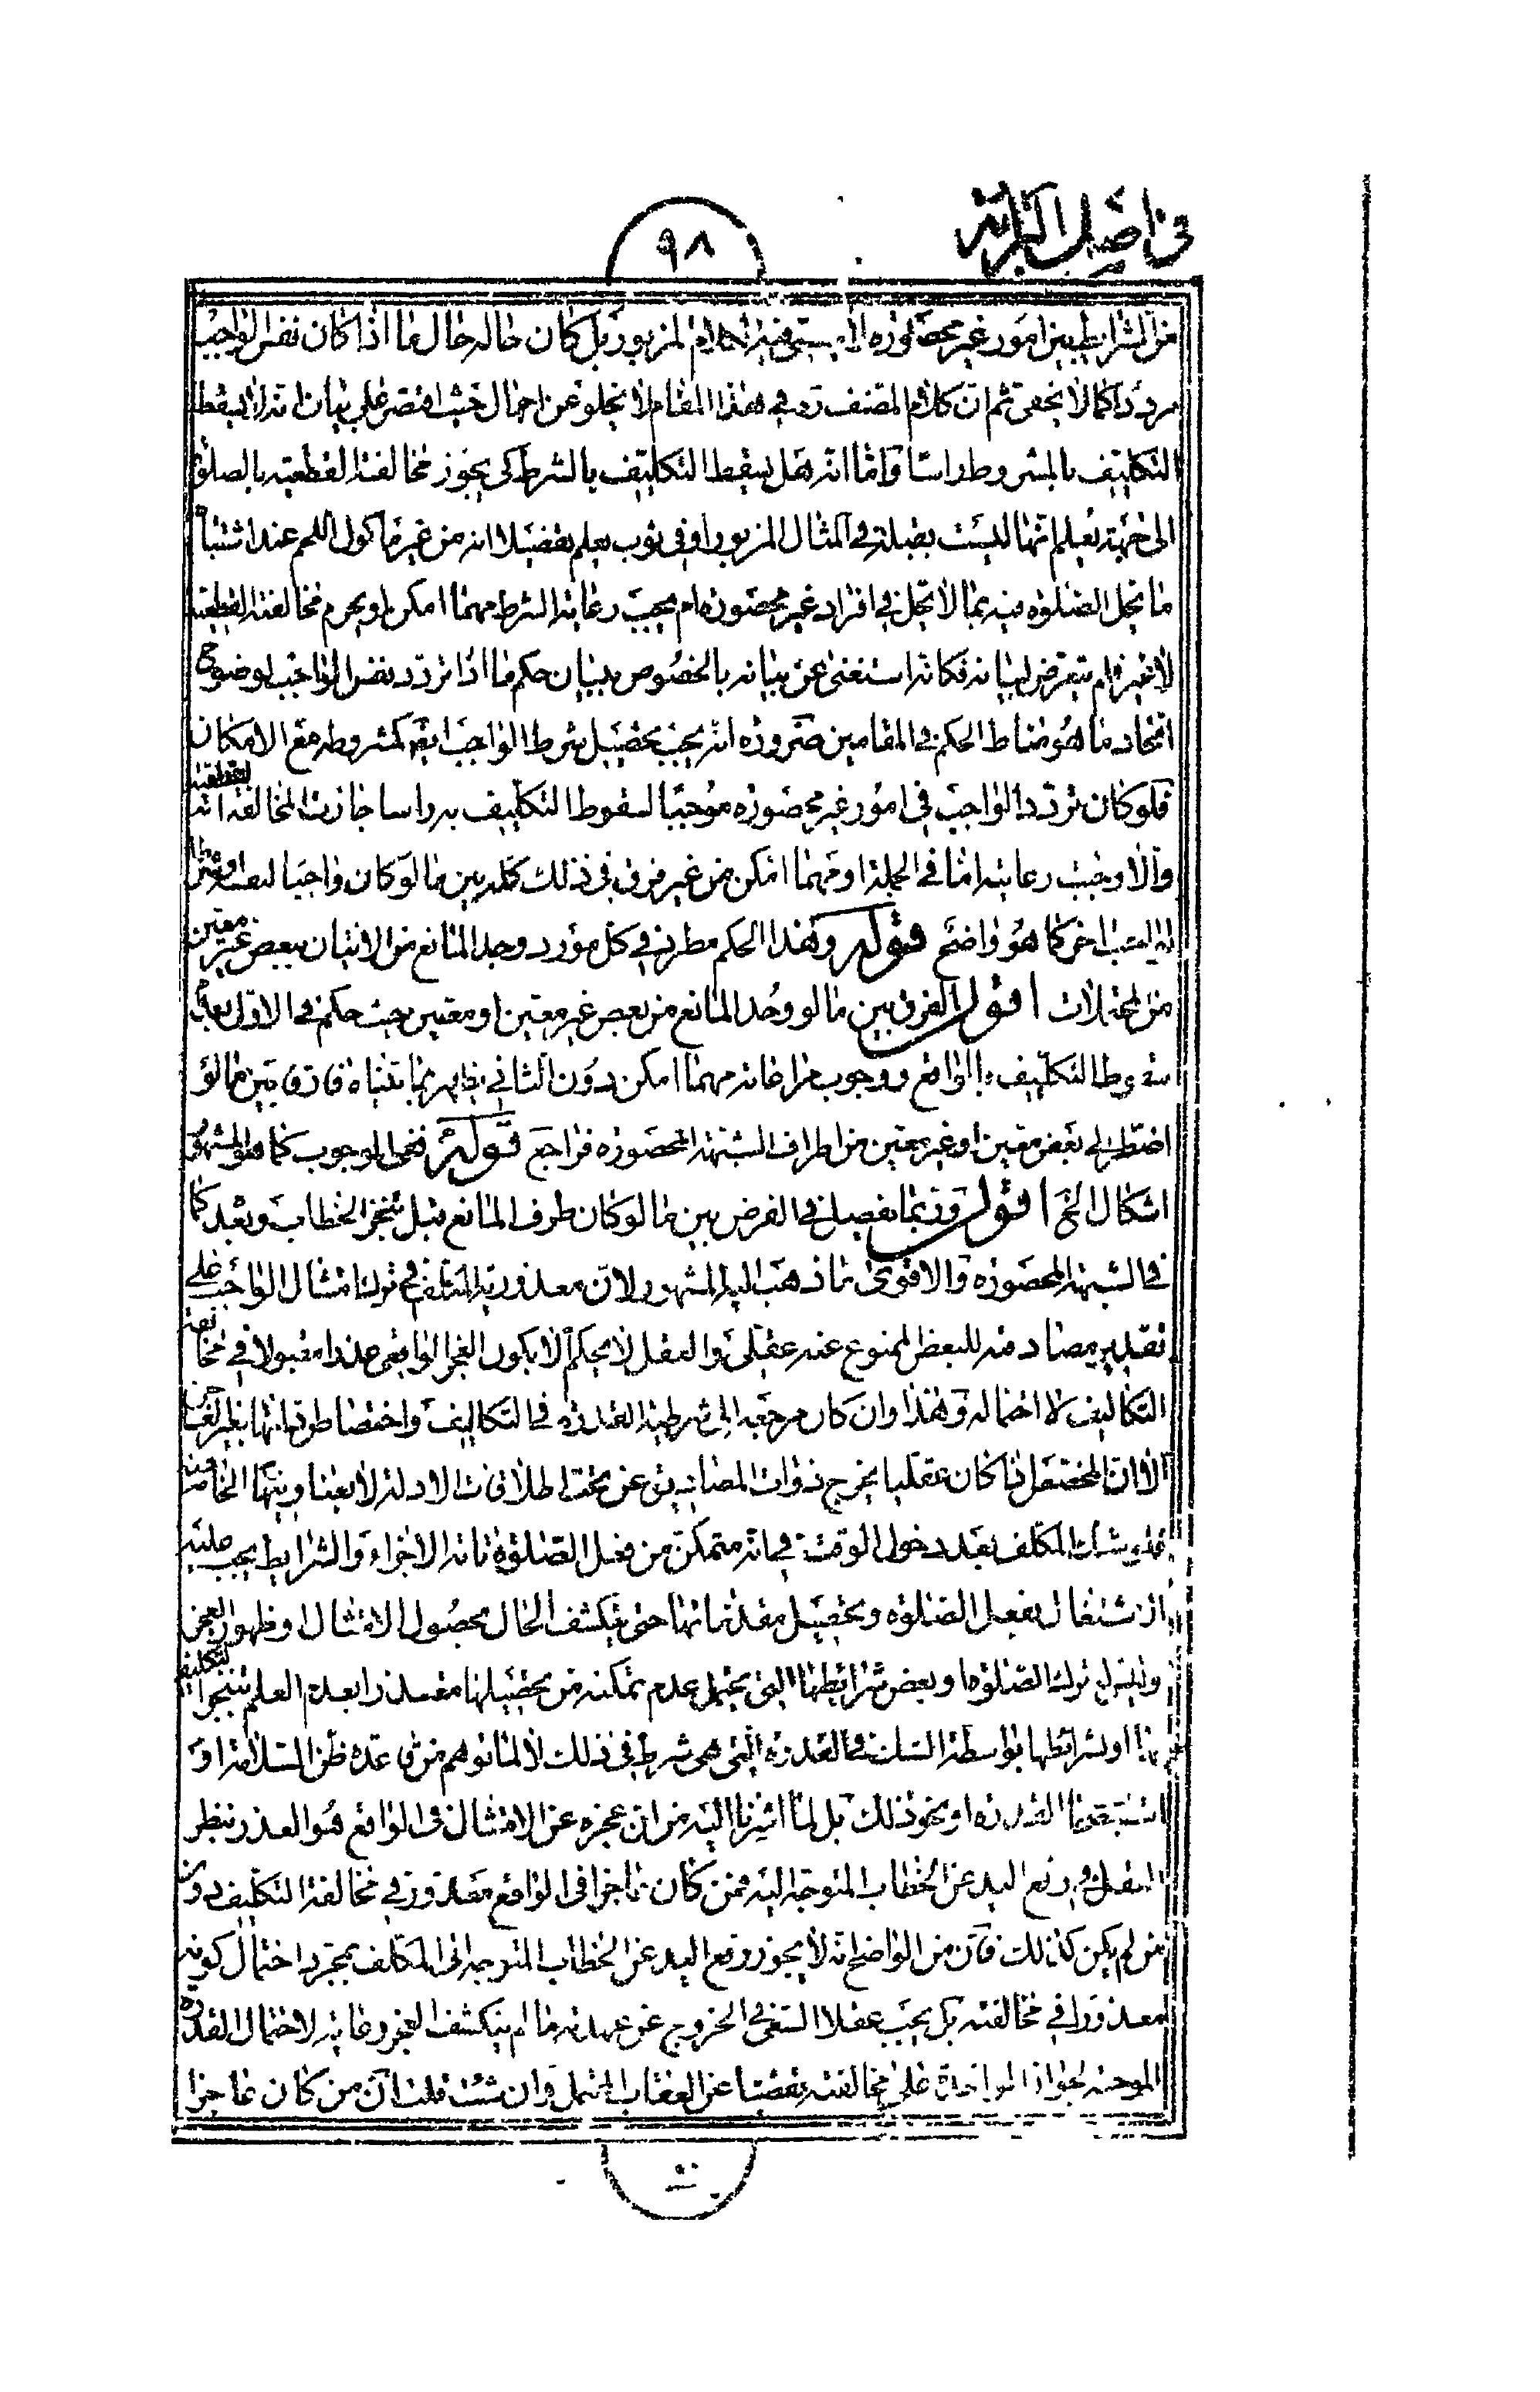 في اصل البرائة
٩٨
من الشرايط بين امور غير محصورة لم يستقم فيه الكلام المزبور بل كان حاله حال ما اذا كان نفس الواجب
مرددا كما لا يخفى ثم ان كلام المصنف ره في هذا المقام لا يخلو عن اجمال حيث اقتصر على بيان انه لا يسقط
التكليف بالمشروط راسا واما انه هل يسقط التكليف بالشرط كى يجوز مخالفته القطعية بالصلوة
الى جهة يعلم انها ليست بقبلة في المثال المزبور او في ثوب يعلم تفصيلا انه من غير ماكول اللحم عند اشتباه
ما تحل الصلوة فيه بما لا تحل في افراد غير محصورة ام يجب رعاية الشرط مهما امكن او يحرم مخالفته القطعية
لا غير فلم يتعرض لبيانه فكانه استغنى عن بيانه بالخصوص ببيان حكم ما اذا تردد نفس الواجب لوضوح
اتحاد ما هو مناط الحكم في المقامين ضرورة انه يجب تحصيل شرط الواجب ايضا كمشروطه مع الامكان
فلو كان تردد الواجب في امور غير محصورة موجبا لسقوط التكليف به راسا جازت المخالفة القطعية
والا وجبت رعايته اما في الجملة او مهما امكن من غير فرق في ذلك كله بين ما لو كان واجبا لنفسه او شرطا
لواجب اخر كما هو واضح قوله وهذا الحكم مطرد في كل مورد وجد المانع من الاتيان ببعض غير معين
من المحتملات اقول الفرق بين ما لو وجد المانع من بعض غير معين او معين حيث حكم في الاول بعدم
سقوط التكليف بالواقع ووجوب مراعاته مهما امكن دون الثاني يظهر مما بيناه فارقا بين ما لو
اضطر الى بعض معين او غير معين من اطراف الشبهة المحصورة فراجع قوله ففى الوجوب كما هو المشهور
اشكال الخ اقول وربما يفصل في الفرض بين ما لو كان طرو المانع قبل تنجز الخطاب وبعده كما
في الشبهة المحصورة والاقوى ما ذهب اليه المشهور لان معذورية المكلف في ترك امتثال الواجب على
تقدير مصادفته للبعض الممنوع عنه عقلى والعقل لا يحكم الا بكون العجز الواقعى عذرا مقبولا في مخالفة
التكاليف لا احتماله وهذا وان كان مرجعه الى شرطية القدرة في التكاليف واختصاص طلباتها بغير العاجز
الا ان المخصص لما كان عقليا يخرج ذوات المصاديق عن تحت اطلاقات الادلة لا بعناوينها الخاصة
فلو شك المكلف بعد دخول الوقت في انه متمكن من فعل الصلوة تامة الاجزاء والشرايط يجب عليه
الاشتغال بفعل الصلوة وتحصيل مقدماتها حتى ينكشف الحال بحصول الامتثال او ظهور العجز
وليس له ترك الصلوة او بعض شرائطها التى يحتمل عدم تمكنه من تحصيلها معتذرا بعدم العلم بتنجز التكليف
بها او بشرائطها بواسطة الشك في القدرة التى هى شرط في ذلك لا لما توهم من قاعدة ظن السلامة او
استصحاب القدرة او نحو ذلك بل لما اشرنا اليه من ان عجزه عن الامتثال في الواقع هو العذر بنظر
العقل في رفع اليد عن الخطاب المتوجه اليه فمن كان عاجزا في الواقع معذور في مخالفة التكليف دون
من لم يكن كذلك فان من الواضح انه لا يجوز رفع اليد عن الخطاب المتوجه الى المكلف بمجرد احتمال كونه
معذورا في مخالفته بل يجب عقلا السعى في الخروج عن عهدته ما لم ينكشف العجز رعاية لاحتمال القدرة
الموجبة لجواز المواخذة على مخالفته تفصيا عن العقاب المحتمل وان شئت قلت ان من كان عاجزا